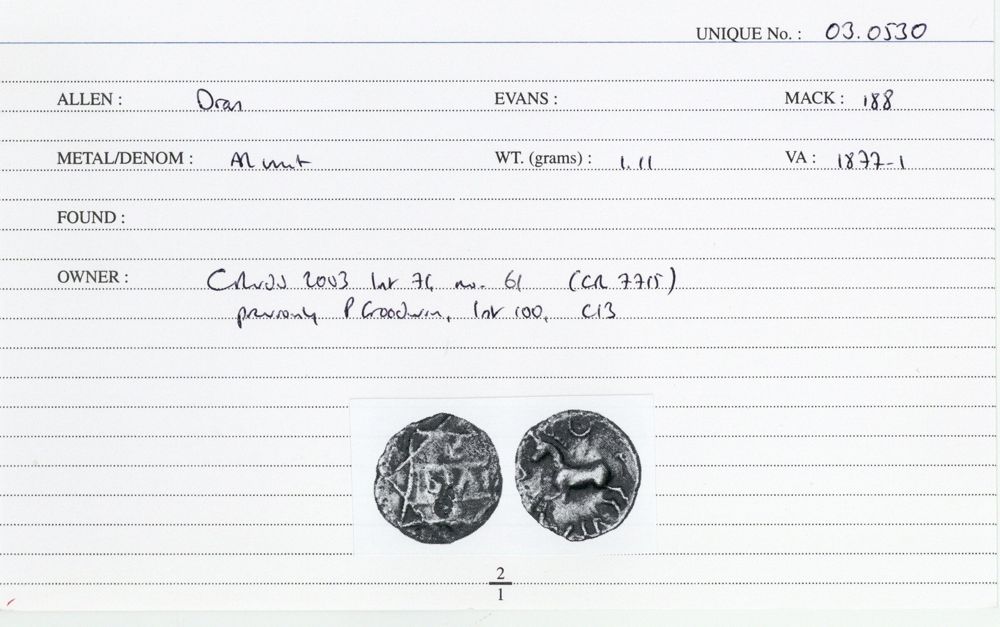 UNIQUE No. : 03.0530
ALLEN : Dran EVANS : MACK : 188
METAL/DENOM : AR unit WT. (grams) : 1.11 VA : 1877-1
FOUND :
OWNER : 2003 no. 61 (CR 7715)
previously P Goodwin, 100, C13
2
1